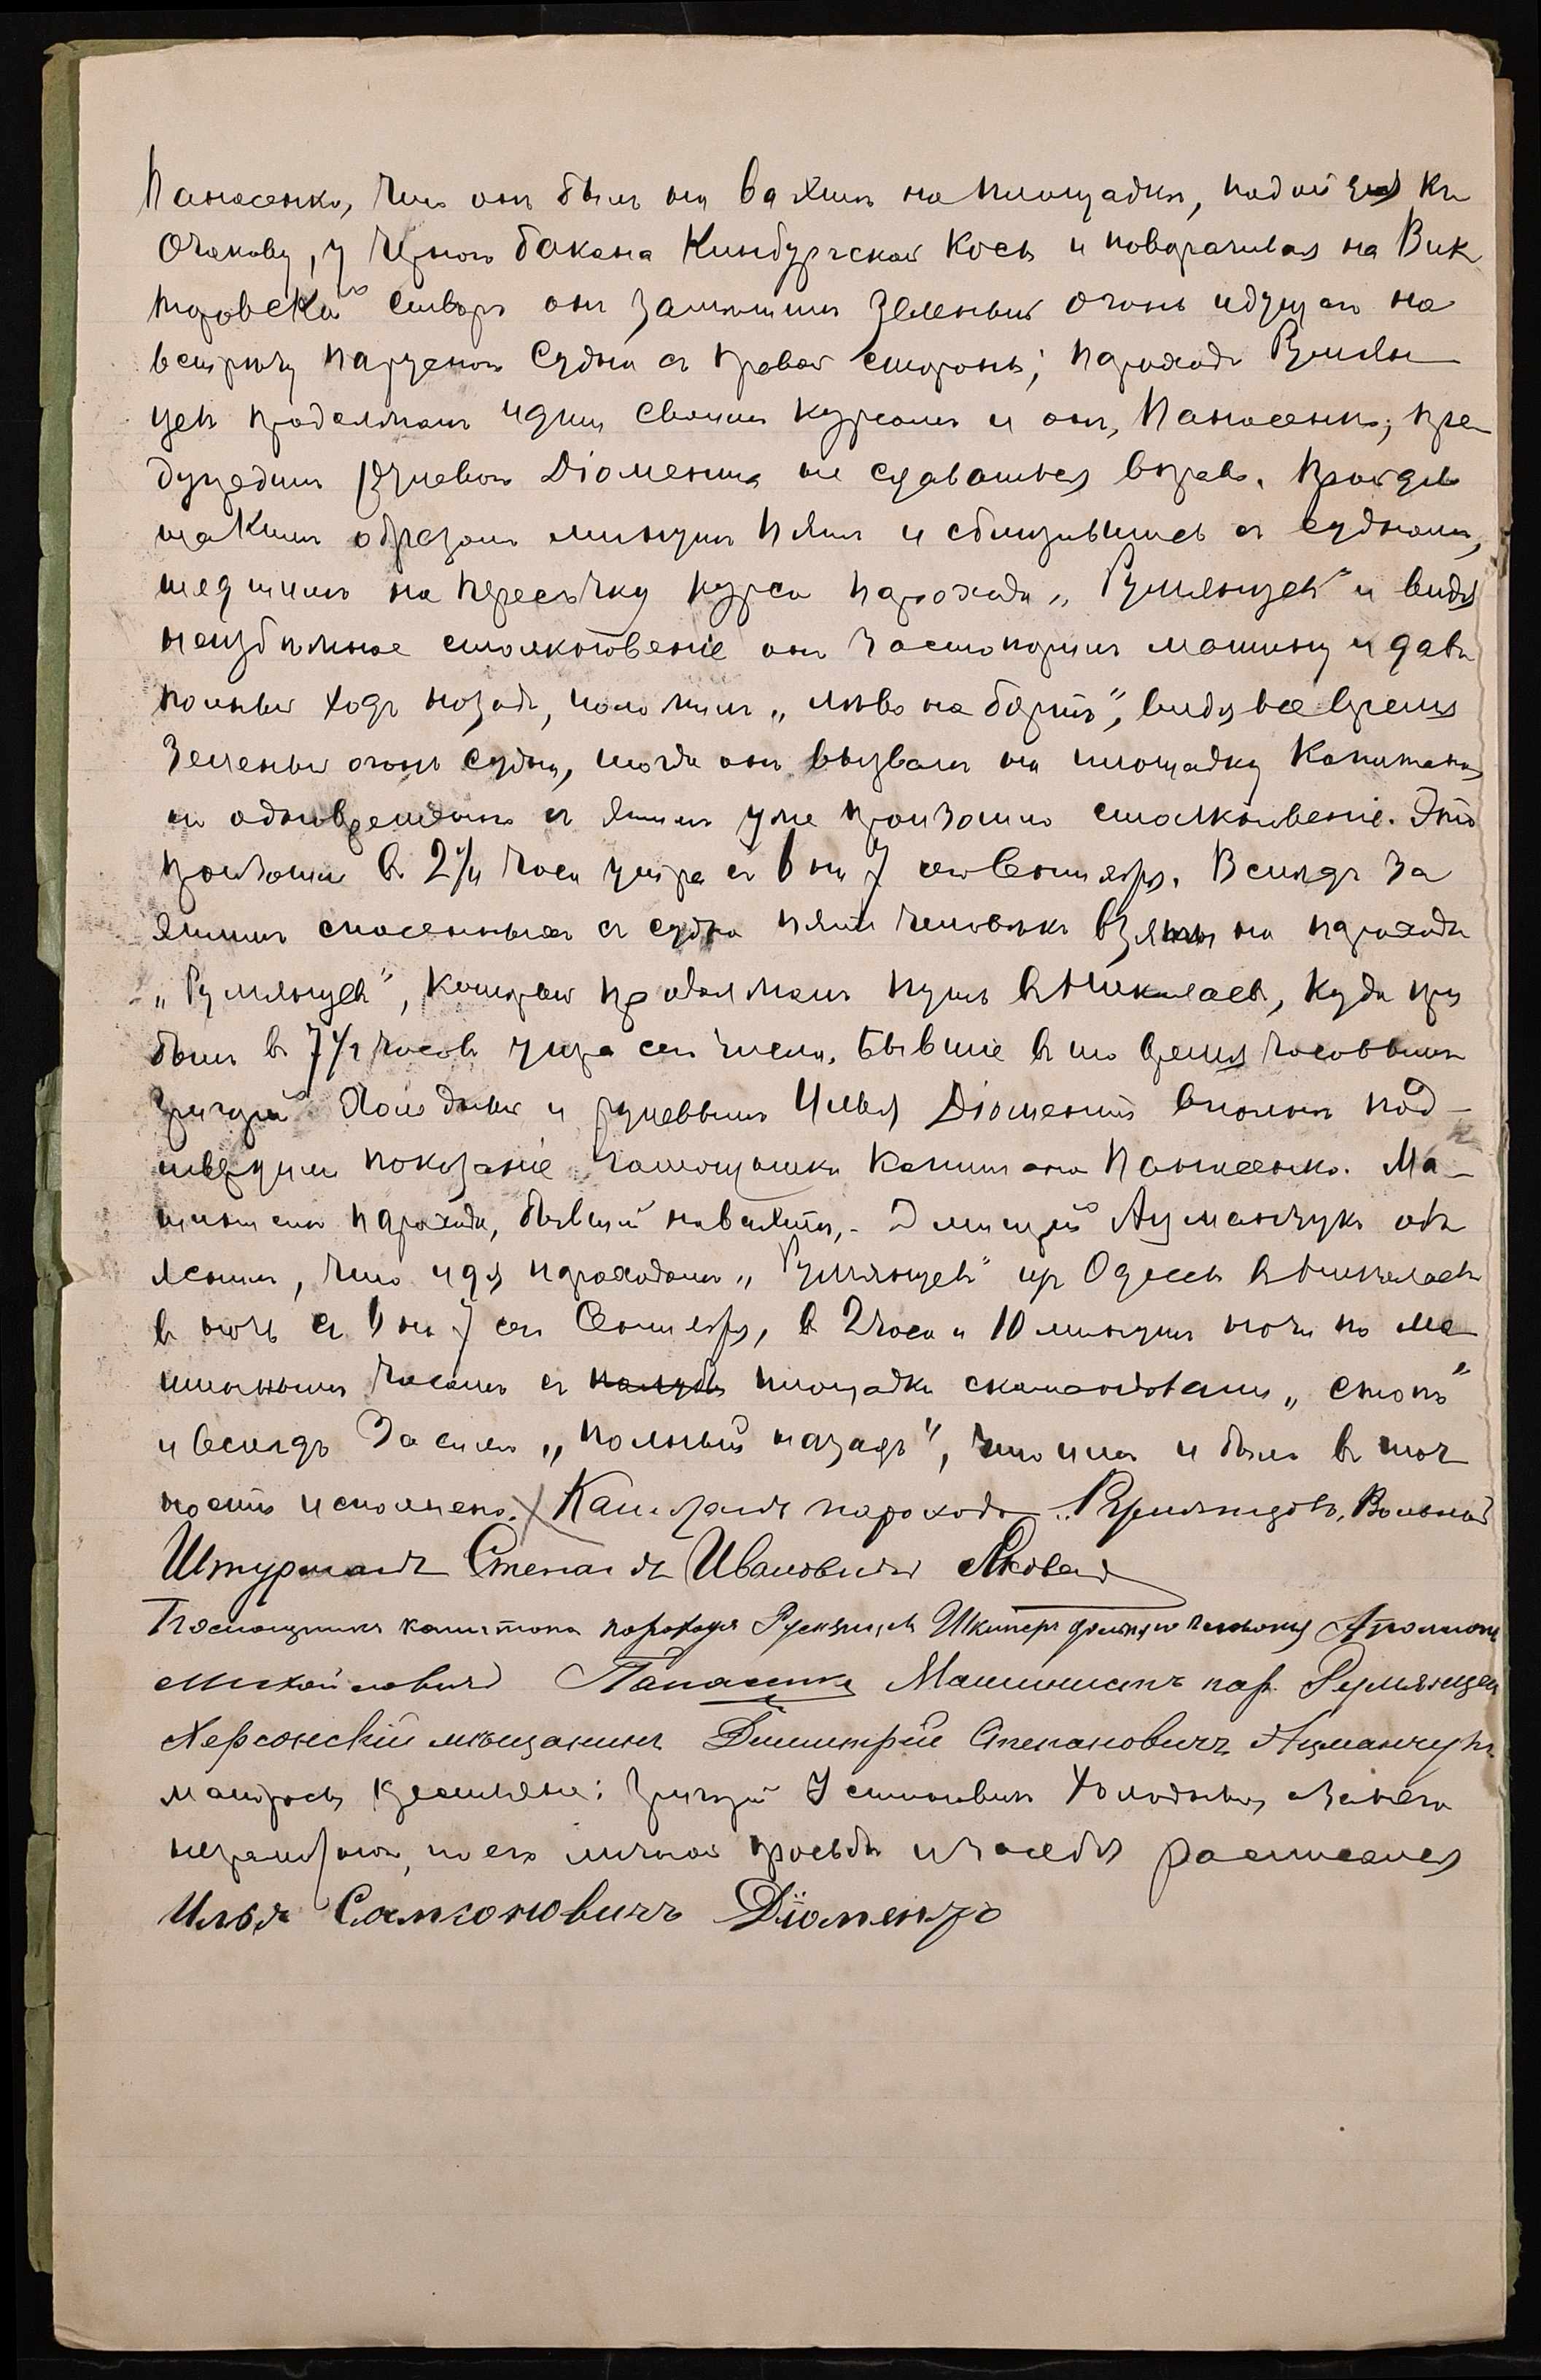 Панасенко, что онъ былъ на вахтѣ на площадкѣ, подойдя къ
Очакову, у Чернаго бакана Кинбургской косы и поворачивая на Вик
торовскій створъ онъ замѣтилъ зеленый огонь идущаго на
встрѣчу паруснаго судна съ правой стороны; пароходъ Румян
цевъ продолжалъ идти своимъ курсомъ и онъ, Панасенко, пре
дупредилъ рулевого Діоменка не сдаваться вправо. Пройдя
такимъ образомъ минутъ пять и сблизившись съ судномъ,
шедшимъ на пересѣчку курса парохода „Румянцевъ" и видя
неизбѣжное столкновеніе онъ застопорилъ машину и давъ
полный ходъ назадъ, положилъ „лѣво на бортъ", видя все время
зеленый огонь судна, тогда онъ вызвалъ на площадку Капитана,
но одновременно съ этимъ уже произошло столкновеніе. Это
произошло въ 2¼ часа утра съ 6 на 7 сего Сентября. Вслѣдъ за
этимъ спасенныхъ съ судна пять человѣкъ взяты на пароходъ
„Румянцевъ", который продолжалъ путь въ Николаевъ, куда при
былъ въ 7½ часовъ утра сего числа. Бывшіе въ то время часовымъ
Григорій Холодный и рулевымъ Илья Діоменко вполнѣ под-
твердили показаніе помощника капитана Панасенко. Ма-
шинистъ парохода, бывшій на вахтѣ, - Димитрій Ацманчукъ объ
яснилъ, что идя пароходомъ „Румянцевъ" изъ Одессы въ Николаевъ
въ ночь съ 6 на 7 сего Сентября, въ 2 часа и 10 минутъ ночи по ма
шиннымъ часамъ съ палубы площадки скомандовали „стопъ"
и вслѣдъ за симъ „полный назадъ", что имъ и было въ точ
ность исполнено. Капитанъ парохода „Румянцовъ, Вольный
Штурманъ Степанъ Ивановичъ
Помощникъ капитана парохода Румянцевъ Шкиперъ дальняго плаванія
Михайловичъ Панасенко Машинистъ пар. Румянцевъ
Херсонскій мѣщанинъ Димитрій Степановичъ Ацманчукъ
матросы крестьяне: Григорій Устиновичъ Холодный, а за него
неграмотнаго, по его личной просьбѣ и за себя расписался
Илья Самсоновичъ Діоменко